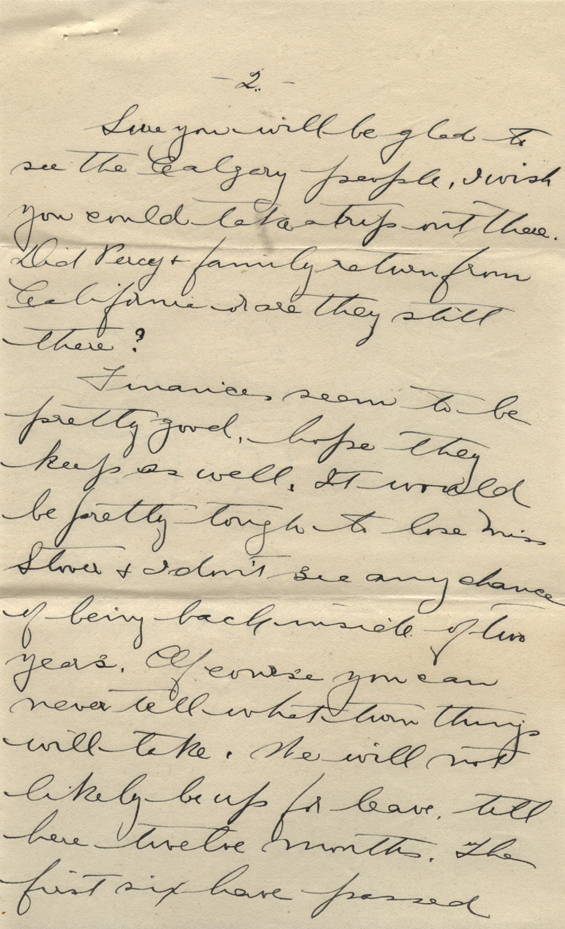 - 2. -
Sure you will be glad to
see the Calgary people, I wish
you could take a trip out there.
Did Percy & family return from
California or are they still
there?
Finances seem to be
pretty good, hope they
keep as well. It would
be pretty tough to lose Miss
Stover & I don't see any chance
of being back inside of two
years. Of course you can
never tell what turn things
will take. We will not
likely be up for leave, till
here twelve months. The
first six have passed